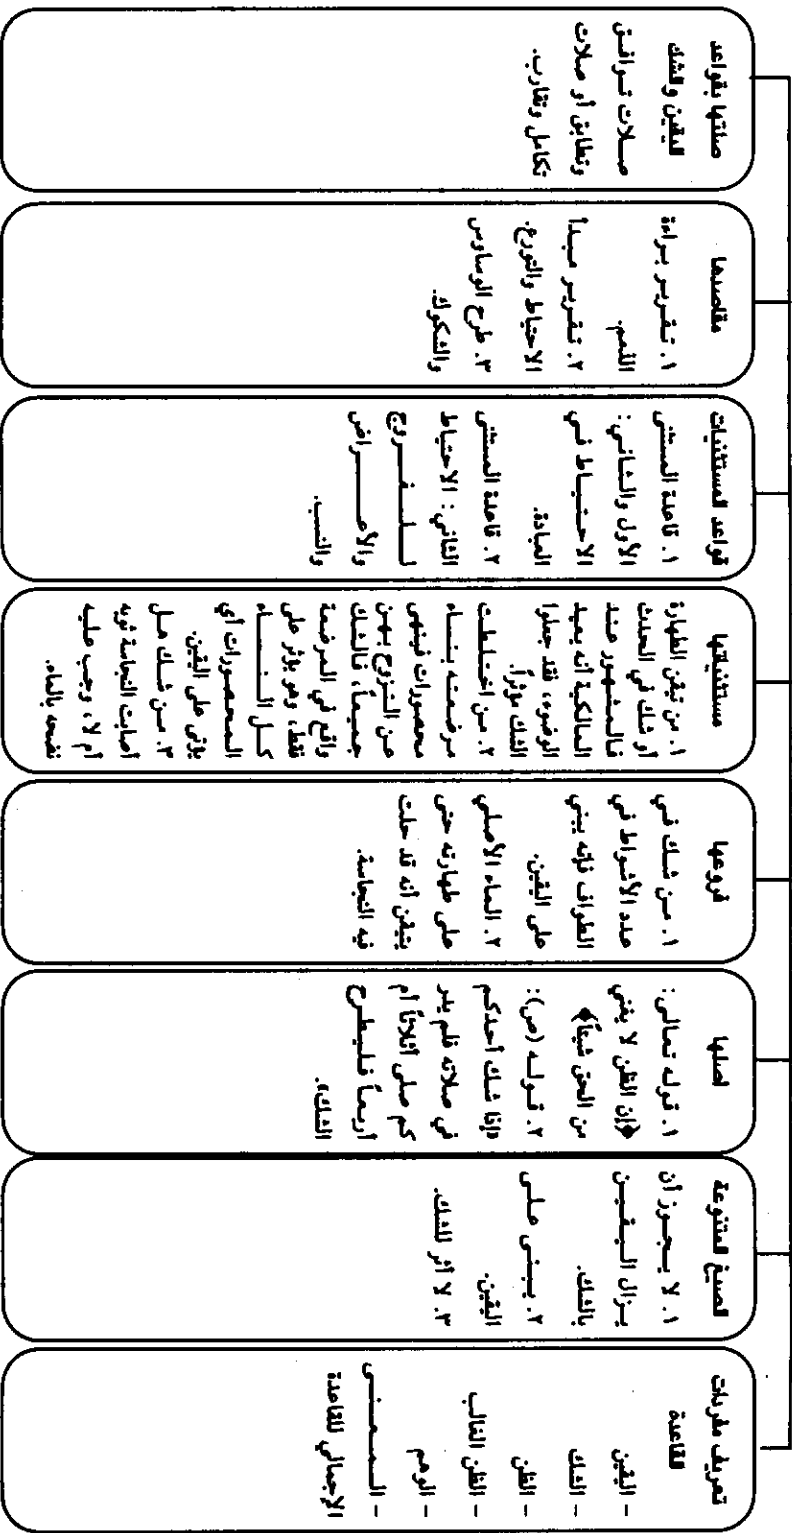 تعريف مفردات
القاعدة
- اليقين
- الشك
- الظن
- الظن الغالب
- الوهم
- المـعـنـى
الإجمالي للقاعدة
الصيغ المتنوعة
١. لا يـجـوز أن
يزال اليـقـيـن
بالشك.
٢. يـبـنـى عـلـى
اليقين.
٣. لا أثر للشك.
أصلها
١. قوله تعالى:
﴿إن الظن لا يغني
من الحق شيئاً﴾
٢. قـولـه (ص):
«إذا شك أحدكم
في صلاته فلم يدر
كم صلى أثلاثاً أم
أربـعـاً فـلـيـطـرح
الشك».
فروعها
١. مـن شـك فـي
عدد الأشواط في
الطواف فإنه يبني
على اليقين.
٢. الـمـاء الأصلي
على طهارته حتى
يتيقن أنه قد حلت
فيه النجاسة.
مستثنياتها
١. من تيقن الطهارة
أو شك في الحدث
فـالـمـشـهـور عـنـد
المالكية أنه يعيد
الوضوء، فقد جعلوا
الشك مؤثراً.
٢. مـن اخـتـلـطـت
مرضعته بـنـسـاء
محصورات فينهى
عـن الـتـزوج بـهـن
جـمـيـعـاً، فالـشـك
واقع في المرضعة
فقط، وهو يؤثر على
كـل الـنـسـاء
الـمـحـصـورات أي
يؤثر على اليقين.
٣. مـن شـك هـل
أصابت النجاسة ثوبه
أم لا، وجب عليه
نضحه بالماء.
قواعد المستثنيات
١. قاعدة المستثنى
الأول والـثـانـي:
الاحـتـيـاط فـي
العبادة.
٢. قاعدة المستثنى
الثاني: الاحتياط
لـلـفـروج
والأعـراض
والنسب.
مقاصدها
١. تـقـريـر بـراءة
الذمم.
٢. تـقـريـر مـبـدأ
الاحتياط والتورع.
٣. طرح الوساوس
والشكوك.
صلتها بقواعد
اليقين والشك
صـلات تـوافـق
وتطابق أو صلات
تكامل وتقارب.